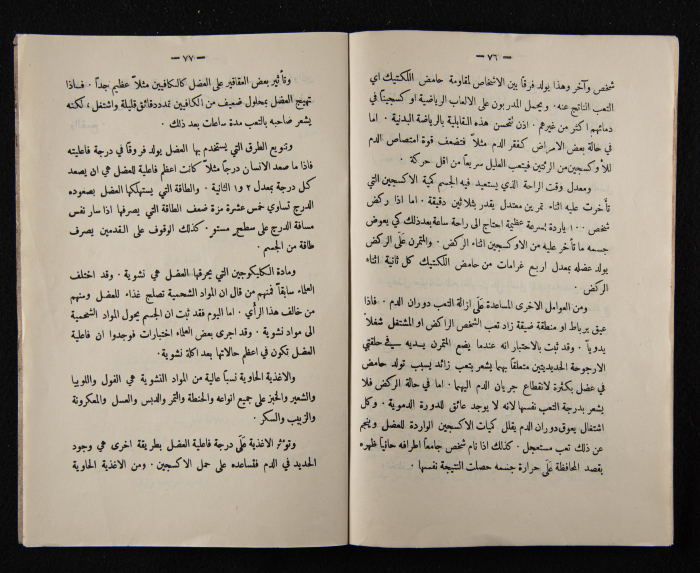 — ٧٦ —
شخص وآخر وهذا يولد فرقاً بين الاشخاص لمقاومة حامض اللكتيك اي
التعب الناتج عنه. ويحمل المدربون على الالعاب الرياضية او كسجيناً في
دمائهم اكثر من غيرهم. اذن تتحسن هذه القابلية بالرياضة البدنية. اما
في حالة بعض الامراض كفقر الدم مثلاً فتضعف قوة امتصاص الدم
للاوكسجين من الرئتين فيتعب العليل سريعاً من اقل حركة.
ومعدل وقت الراحة الذي يستعيد فيه الجسم كمية الاكسجين التي
تأخرت عليه اثناء تمرين معتدل يقدر بثلاثين دقيقة. اما اذا ركض
شخص ١٠٠ ياردة بسرعة عظيمة احتاج الى راحة ساعة بعد ذلك كي يعوض
جسمه ما تأخر عليه من الاوكسجين اثناء الركض. والتمرن على الركض
يولد عضله بمعدل اربع غرامات من حامض اللكتيك كل ثانية اثناء
الركض.
ومن العوامل الاخرى المساعدة على ازالة التعب دوران الدم. فاذا
عيق برباط او منطقة ضيقة زاد تعب الشخص الراكض او المشتغل شغلاً
يدوياً. وقد ثبت بالاختبار انه عندما يضع التمرن يديه في حلقتي
الارجوحة الحديديتين متعلقاً بهما يشعر بتعب زائد بسبب تولد حامض
في عضل بكثرة لانقطاع جريان الدم اليهما. اما في حالة الركض فلا
يشعر بدرجة التعب نفسها لانه لا يوجد عائق للدورة الدموية. وكل
اشتغال يعوق دوران الدم يقلل كيات الاكسجين الواردة للعضل وينجم
عن ذلك تعب مستعجل. كذلك اذا نام شخص جامعاً اطرافه حانياً ظهره
بقصد المحافظة على حرارة جسمه حصلت النتيجة نفسها.
— ٧٧ —
وتأثير بعض العقاقير على العضل كالكافيين مثلاً عظيم جداً. فاذا
تهيج العضل بمحلول ضعيف من الكافيين تمدد دقائق قليلة واشتغل، لكنه
يشعر صاحبه بالتعب مدة ساعات بعد ذلك.
وتنويع الطرق التي يستخدم بها العضل يولد فروقاً في درجة فاعليته
فاذا ما صعد الانسان درجاً مثلاً كانت اعظم فاعلية للعضل هي ان يصعد
كل درجة بمعدل ٢ و١ الثانية. والطاقة التي يستهلكها العضل بصعوده
الدرج تساوي خمس عشرة مرة ضعف الطاقة التي يصرفها اذا سار نفس
مسافة الدرج على سطح مستو. كذلك الوقوف على القدمين يصرف
طاقة من الجسم.
ومادة الكليكوجين التي يحرقها العضل هي نشوية. وقد اختلف
العلماء سابقاً فمنهم من قال ان المواد الشحمية تصلح غذاء للعضل ومنهم
من خالف هذا الرأي. اما اليوم فقد ثبت ان الجسم يحول المواد الشحمية
الى مواد نشوية. وقد اجرى بعض العلماء اختبارات فوجدوا ان فاعلية
العضل تكون في اعظم حالاتها بعد اكلة نشوية.
والاغذية الحاوية نسباً عالية من المواد النشوية هي الفول واللوبيا
والشعير والخبز على جميع انواعه والحنطة والتمر والدبس والعسل والمعكرونة
والزبيب والسكر.
وتؤثر الاغذية على درجة فاعلية العضل بطريقة اخرى هي وجود
الحديد في الدم فتساعده على حمل الاكسجين. ومن الاغذية الحاوية